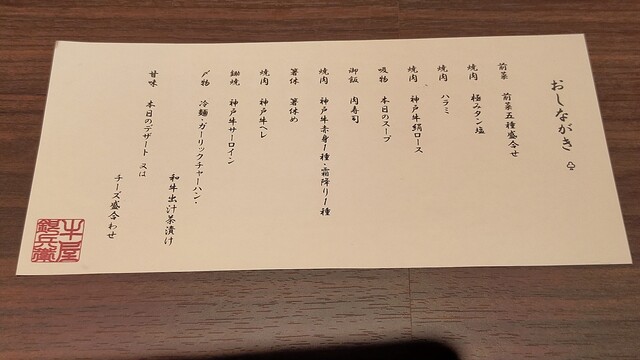 おしながき
前菜 前菜五種盛合せ
焼肉 極みタン塩
焼肉 ハラミ
焼肉 神戸牛絹ロース
吸物 本日のスープ
御飯 肉寿司
焼肉 神戸牛赤身1種・霜降り1種
箸休 箸休め
焼肉 神戸牛ヘレ
鋤焼 神戸牛サーロイン
〆物 冷麺・ガーリックチャーハン・
和牛出汁茶漬け
甘味 本日のデザート 又は
チーズ盛合わせ
牛屋
銀兵衛